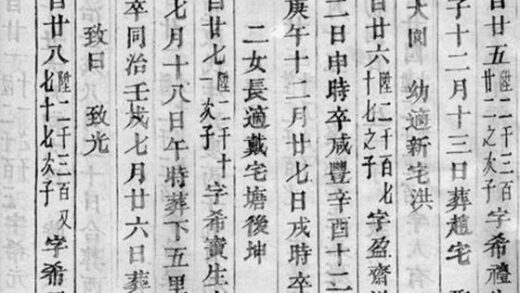 廿五陞二千三百廿二之次子字希禮生
子十二月十三日葬趙宅
幼適新宅洪
廿六陞二千百七十七之子字盈齋
二日申時卒咸豐辛酉十二
庚午十二月廿七日戌時卒
二女長適戴宅塘後坤
廿七陞二千十一次子字希寶生
七月十八日午時葬下五里
卒同治壬戌七月廿六日葬
致日 致光
廿八陞二千三百又七十七次子字希